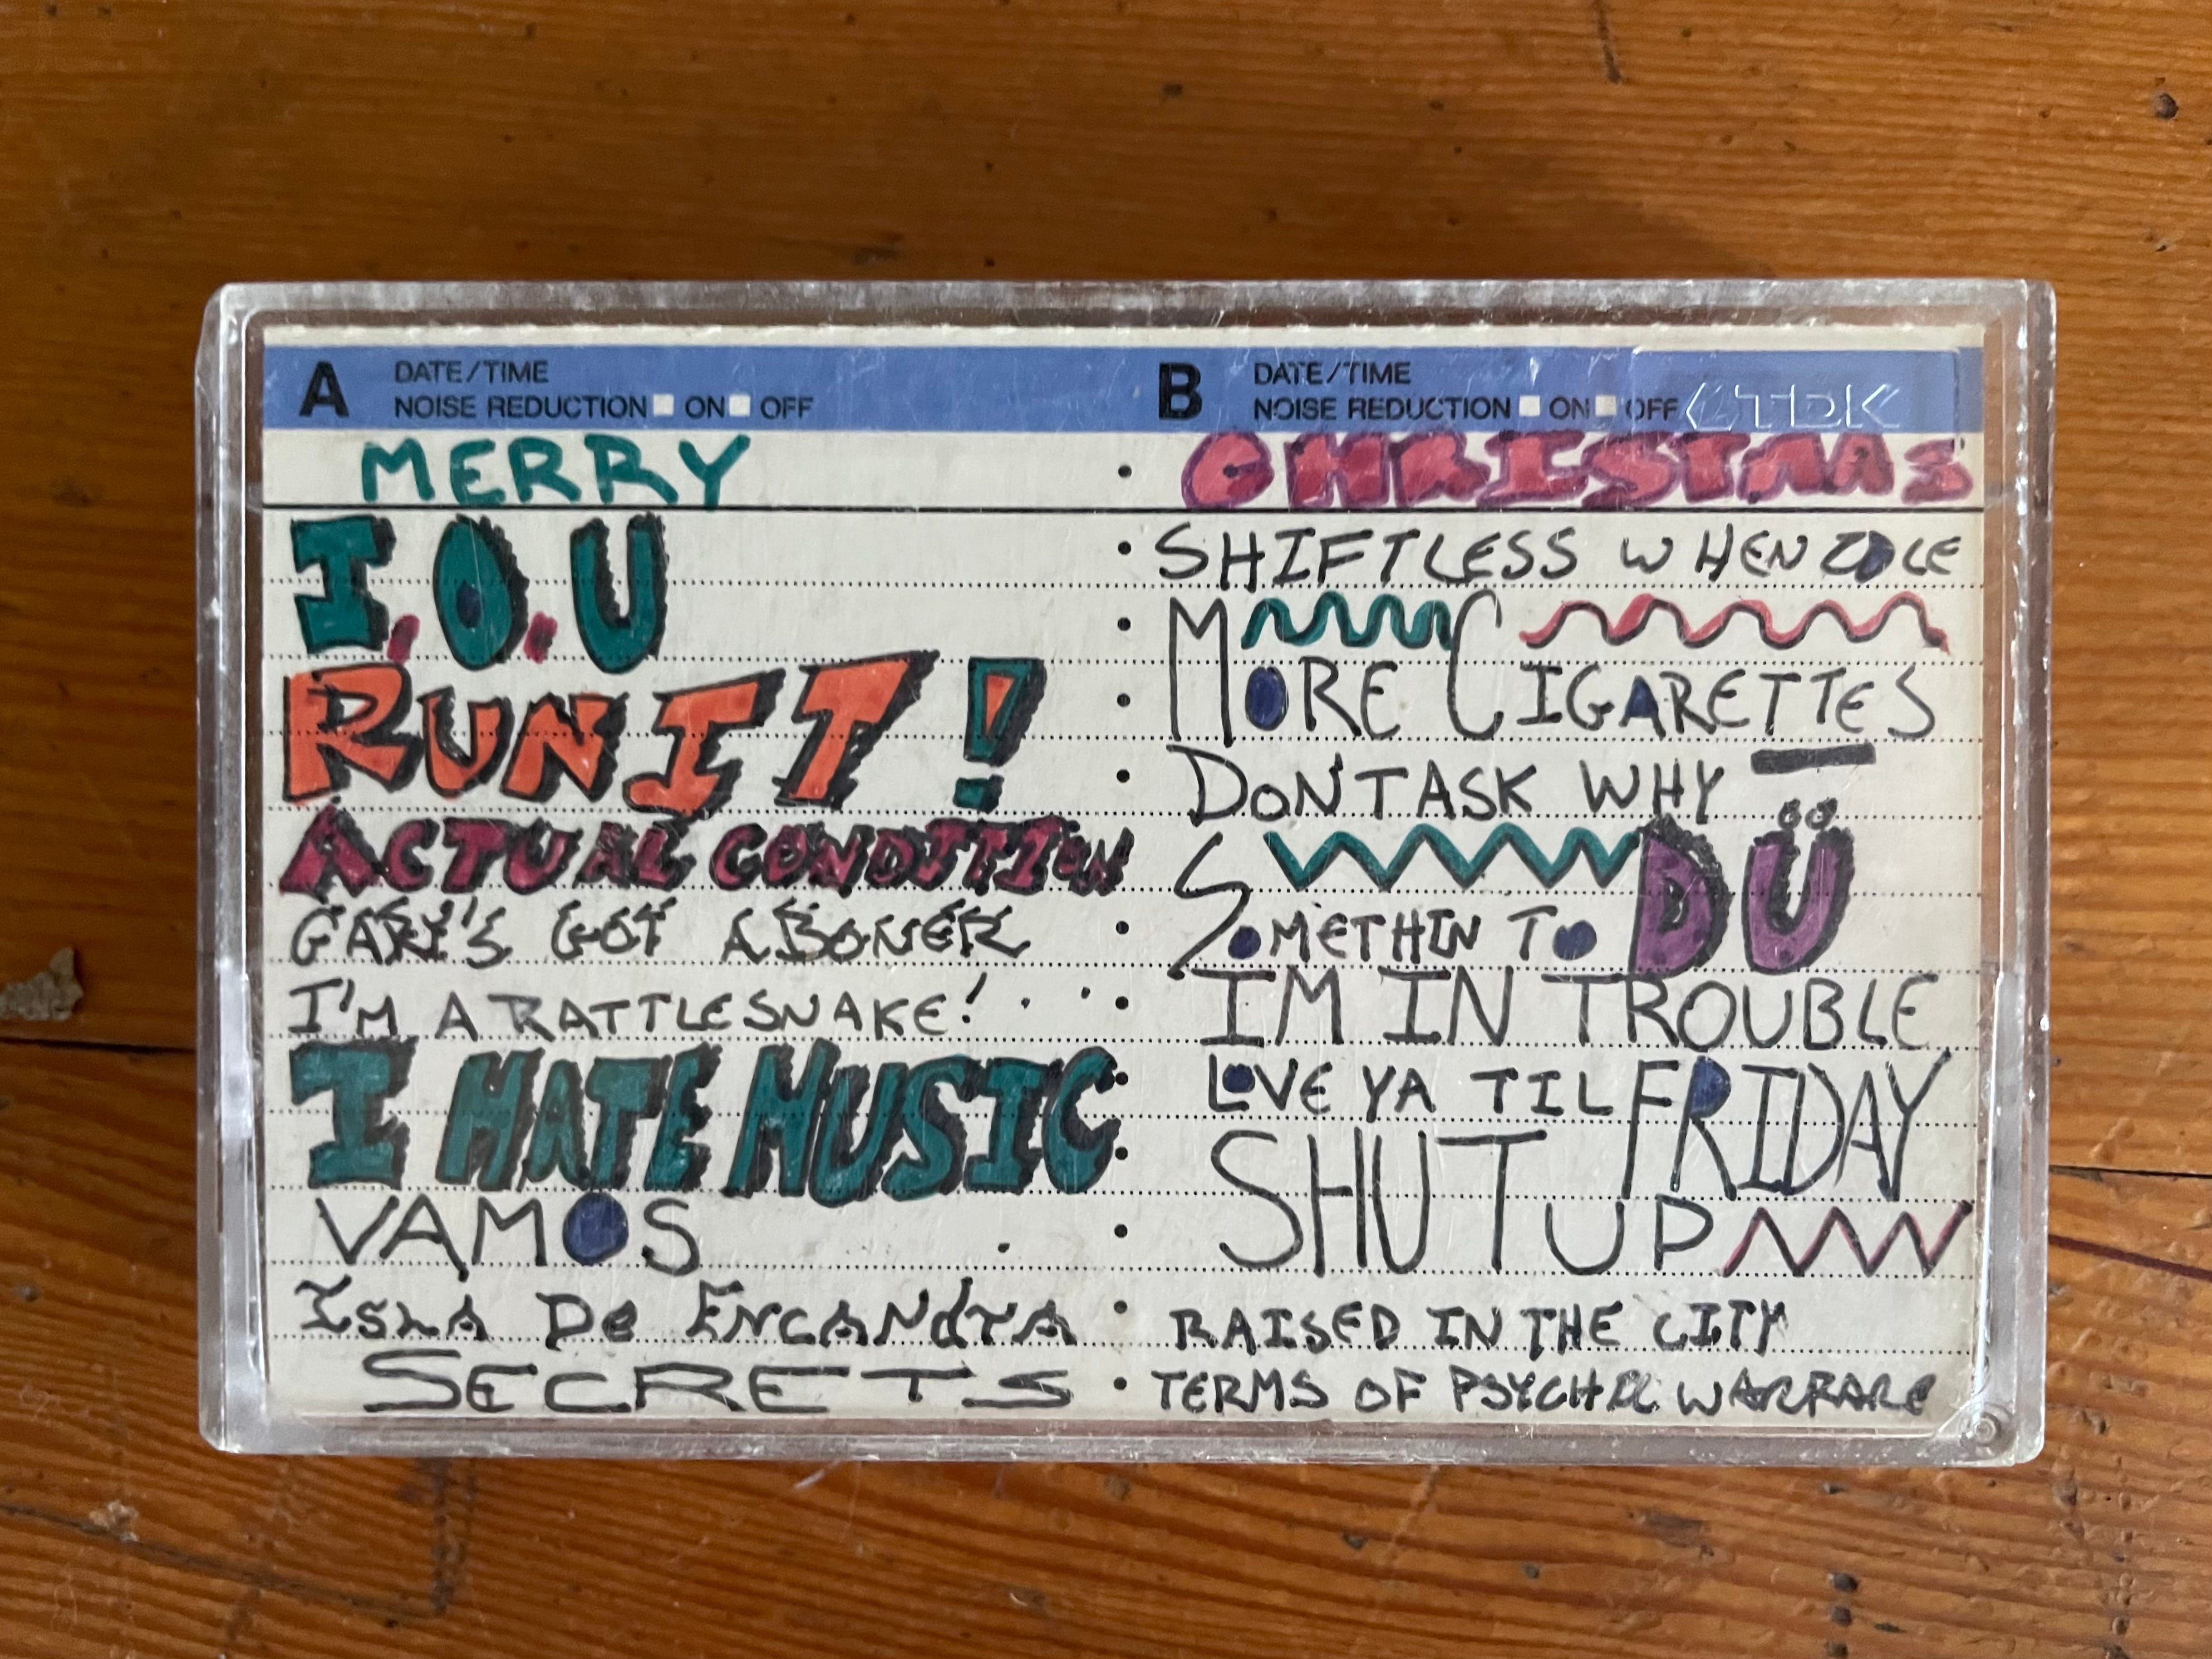 A DATE/TIME
NOISE REDUCTION ON OFF
MERRY
I.O.U
RUN IT!
ACTUAL CONDITION
GARY'S GOT A BONER
I'M A RATTLESNAKE!
I HATE MUSIC
VAMOS
ISLA De ENCANdTA
SECRETS
B DATE/TIME
NOISE REDUCTION ON OFF
TDK
CHRISTMAS
SHIFTLESS WHEN IDLE
MORE CIGARETTES
DON'T ASK WHY
SOMETHIN TO DÜ
IM IN TROUBLE
LOVE YA TIL FRIDAY
SHUT UP
RAISED IN THE CITY
TERMS OF PSYCHIC WARFARE